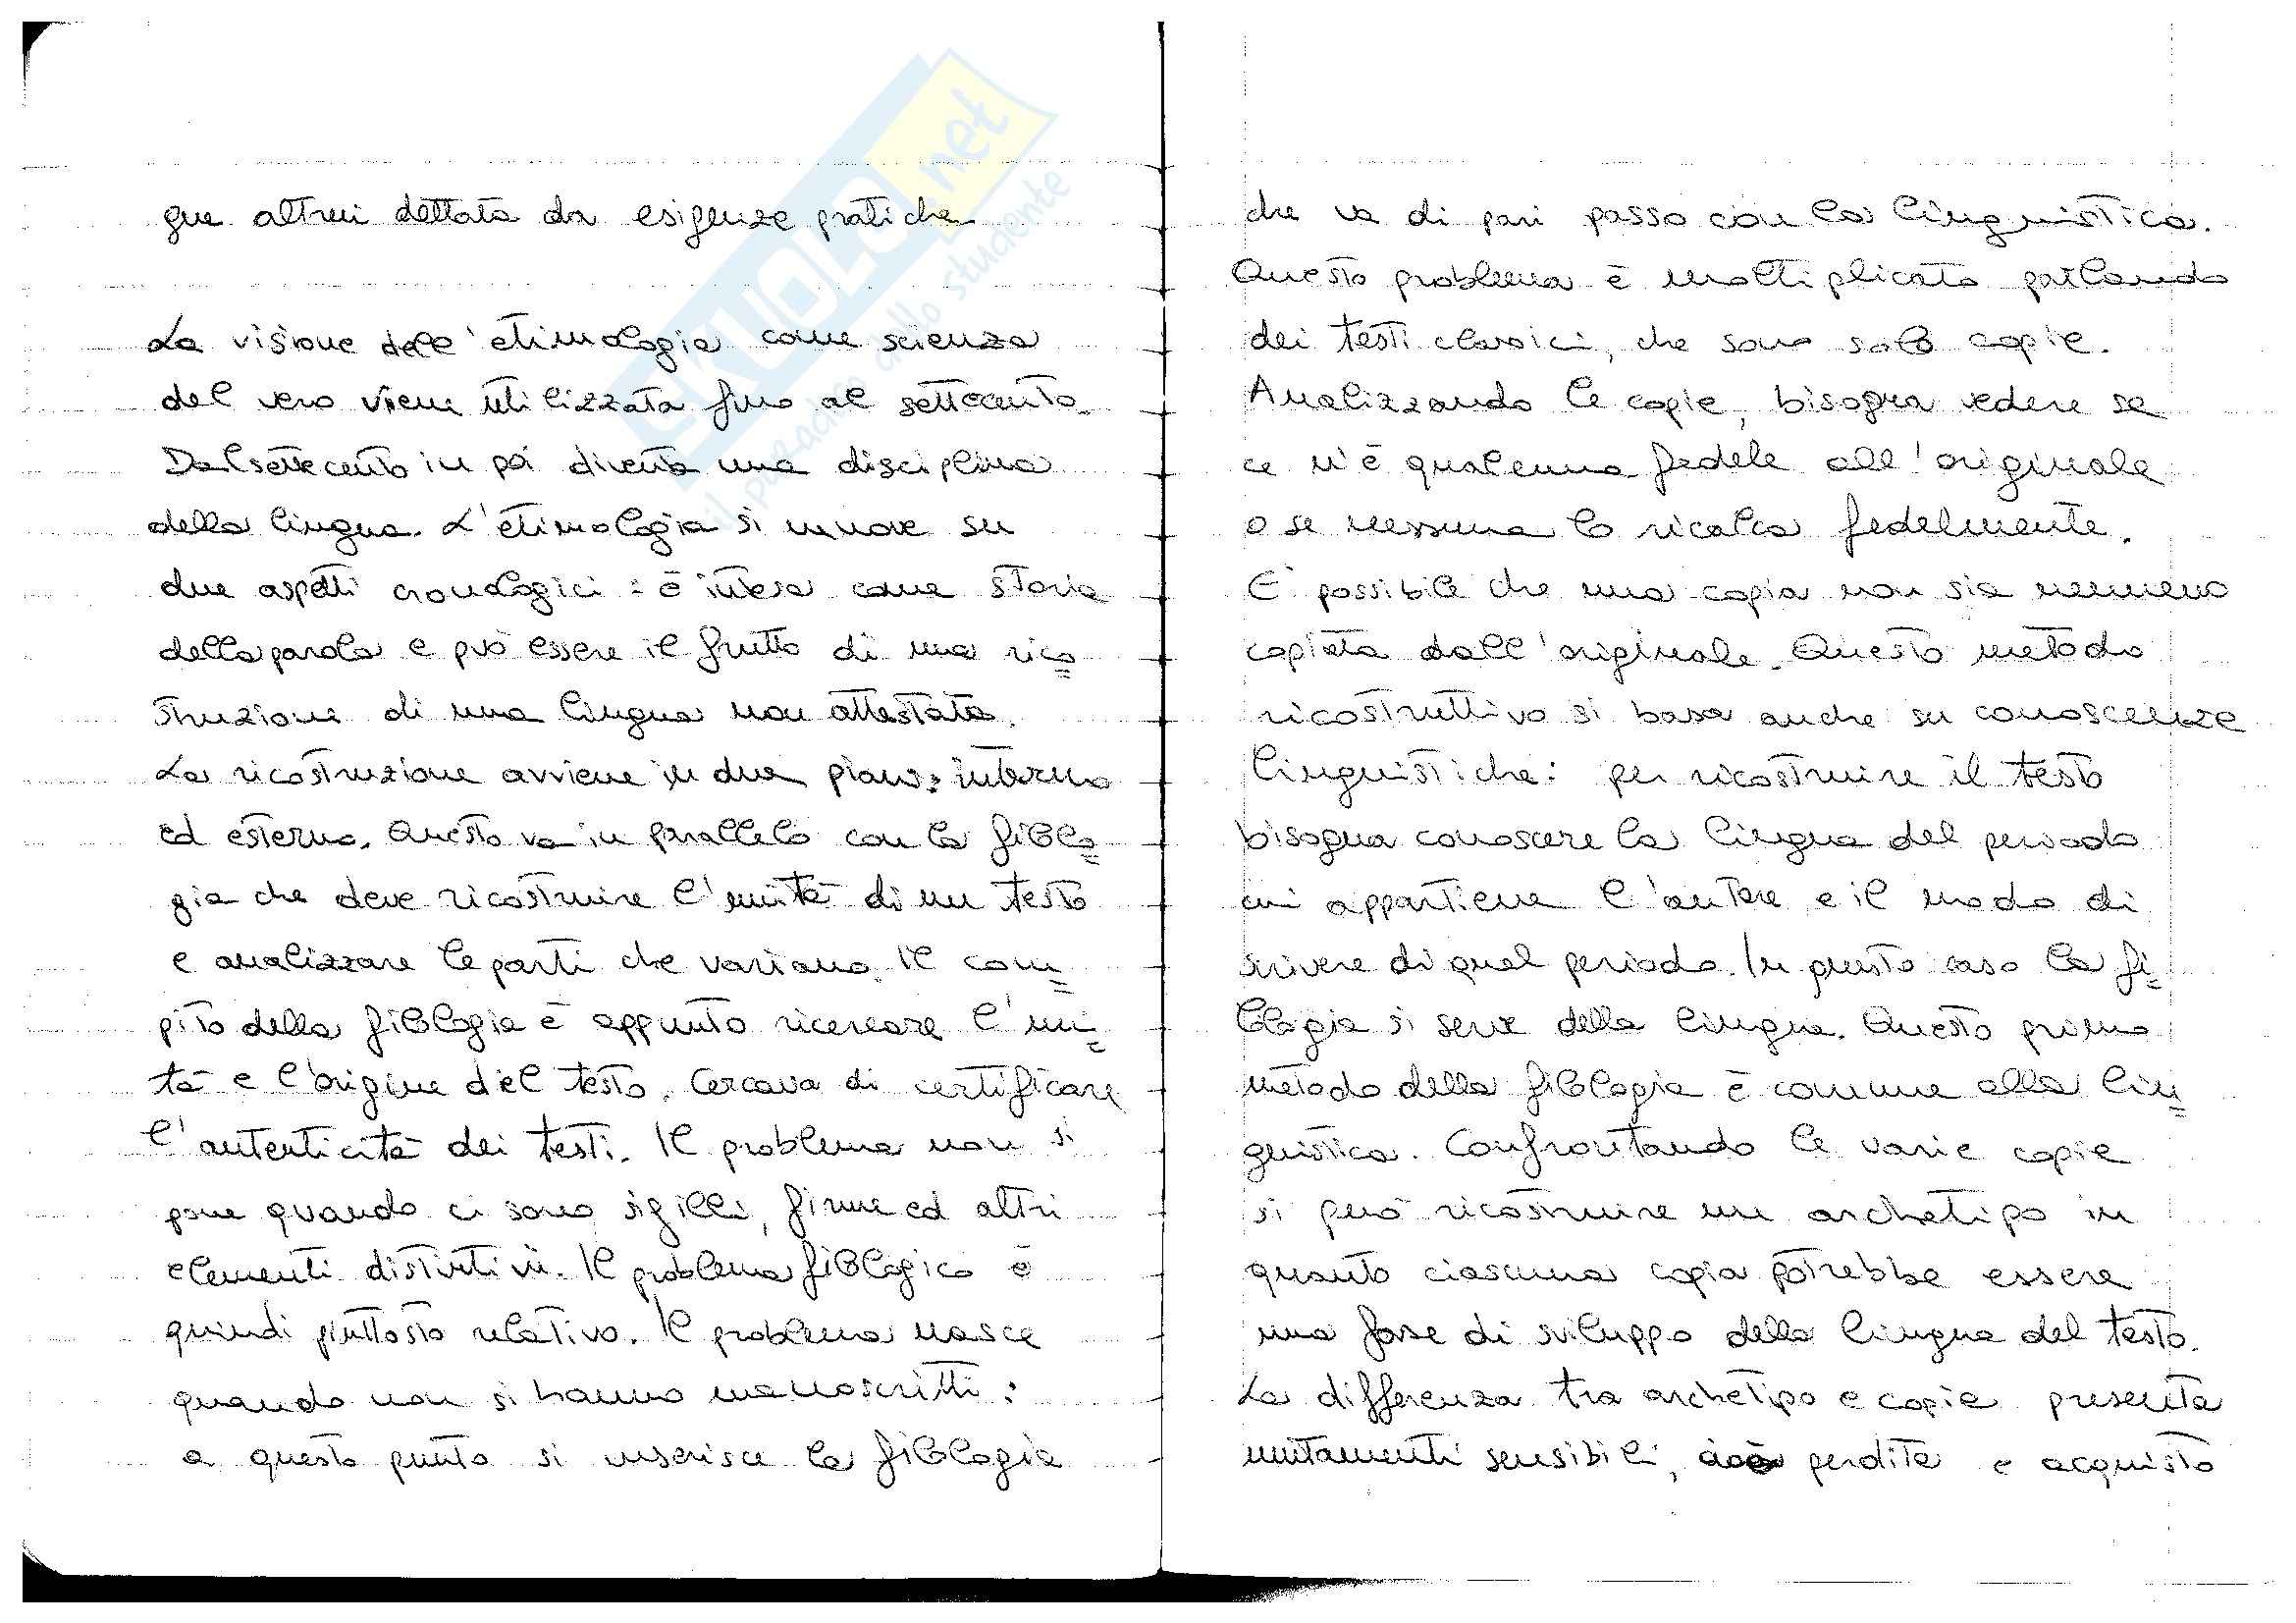 gue altrui dettata da esigenze pratiche
La visione dell'etimologia come scienza
del vero viene utilizzata fino al settecento.
Dal settecento in poi diventa una disciplina
della lingua. L'etimologia si muove su
due aspetti cronologici: è intesa come storia
della parola e può essere il frutto di una rico=
struzione di una lingua non attestata.
La ricostruzione avviene in due piani: interno
ed esterno. Questo va in parallelo con la filolo=
gia che deve ricostruire l'unità di un testo
e analizzare le parti che variano. Il com=
pito della filologia è appunto ricercare l'uni=
tà e l'origine del testo. Cercava di certificare
l'autenticità dei testi. Il problema non si
pone quando ci sono sigilli, firme ed altri
elementi distintivi. Il problema filologico è
quindi piuttosto relativo. Il problema nasce
quando non si hanno manoscritti:
a questo punto si inserisce la filologia
che va di pari passo con la linguistica.
Questo problema è moltiplicato parlando
dei testi classici, che sono solo copie.
Analizzando le copie, bisogna vedere se
ce n'è qualcuna fedele all'originale
o se nessuna lo ricalca fedelmente.
E' possibile che una copia non sia nemmeno
copiata dall'originale. Questo metodo
ricostruttivo si basa anche su conoscenze
linguistiche: per ricostruire il testo
bisogna conoscere la lingua del periodo
cui appartiene l'autore e il modo di
scrivere di quel periodo. In questo caso la fi=
lologia si serve della lingua. Questo primo
metodo della filologia è comune alla lin=
guistica. Confrontando le varie copie
si può ricostruire un archetipo in
quanto ciascuna copia potrebbe essere
una fase di sviluppo della lingua del testo.
La differenza tra archetipo e copia presenta
mutamenti sensibili, cioè perdita e acquisto
SKUOLA.net
il paradiso dello studente